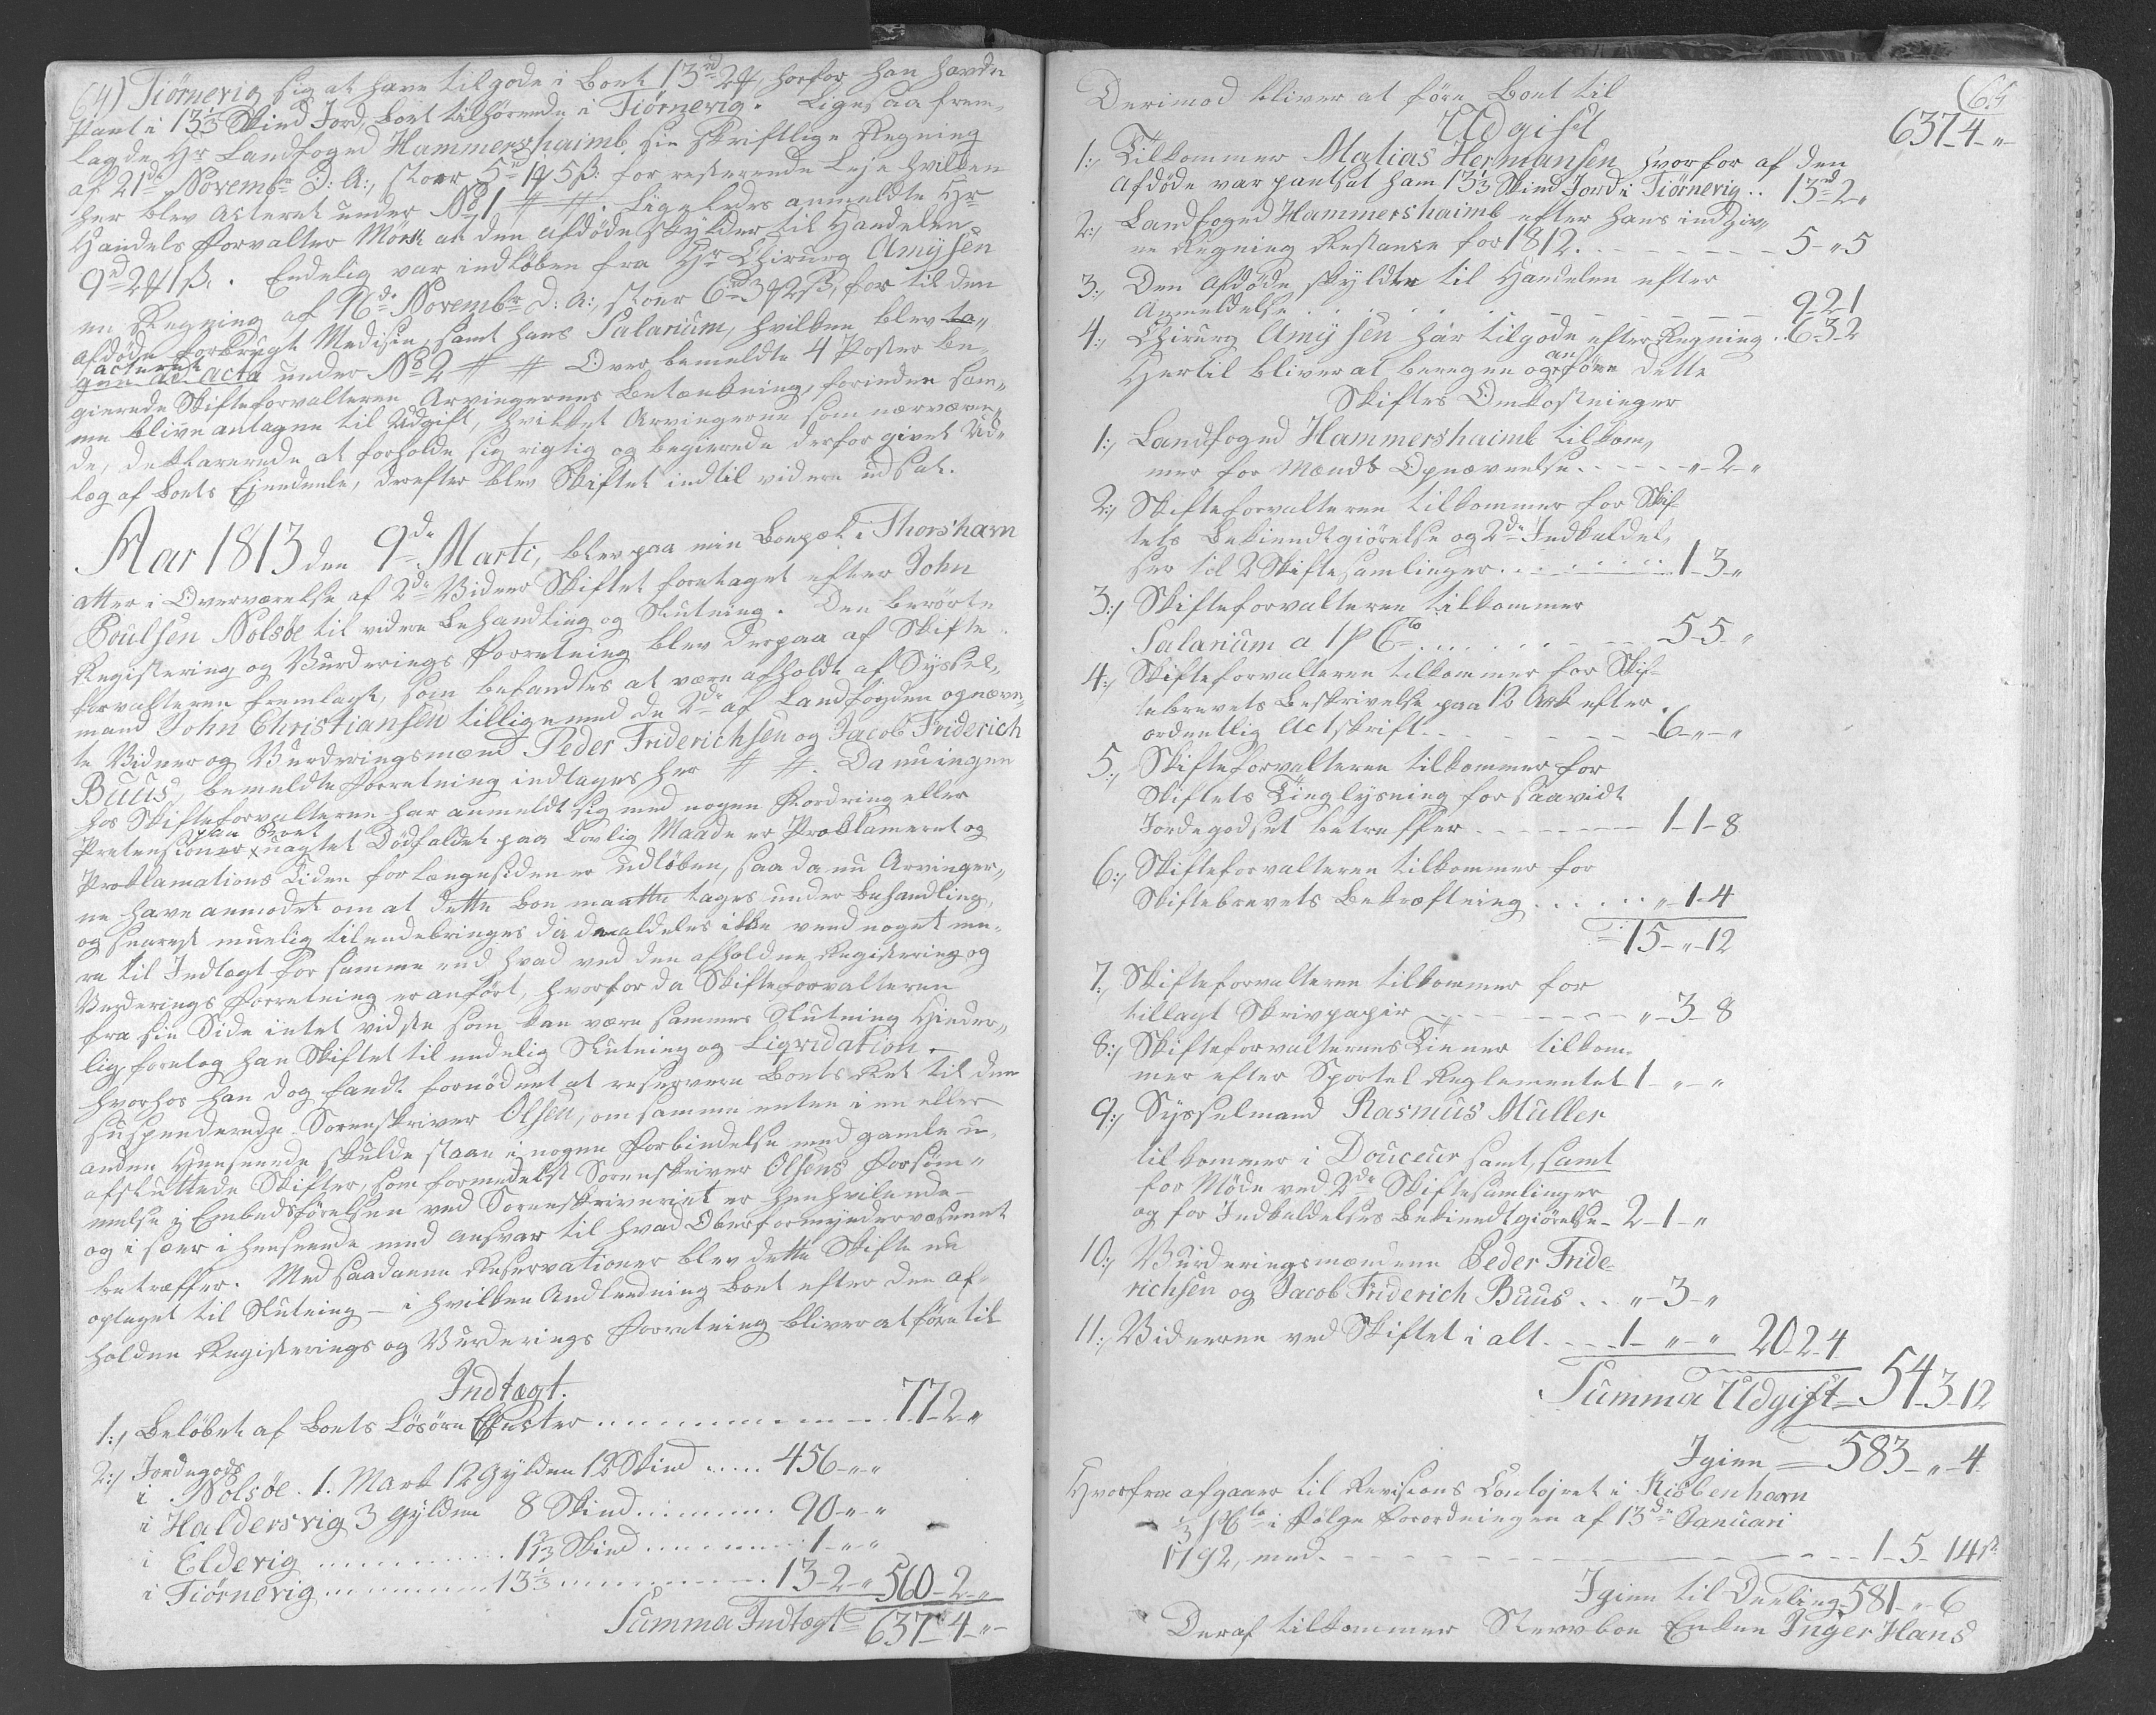 64) Tiørnevig sig at have tilgode i Boet 13rd 2 ₰, horfor han havde
Pant i 13 1/3 Skind Jord, Boet tilhørende i Tiørnevig. Ligesaa frem-
lagde Hr Landfoged Hammershaimb sin skriftlige Regning
af 21de Novembr D: A:, stoer 5rd 1₰ 5ß: for resterende Leje hvilken
her blev Acteret under No 1 # #. Ligeledes anmeldte Hr
Handels Forvalter Mørk at den afdøde skylder til Handelen
9rd 2₰ 1ß. Endelig var indløben fra Hr Chirurg Amysen
en Regning af 16de Novembr D: A:, stoer 6rd 3₰ 2ß, for til den
afdøde forbrugt Medisin, samt hans Salarium, hvilken blev ta-
acteret
gen ad acta under No 2 # # Over bemeldte 4 Poster be-
gierede Skifteforvalteren Arvingernes Betænkning, forinden sam-
me blive antagne til Udgift, hvilket Arvingerne som nærværen-
de, deklarerede at forholde sig rigtig og begierede derfor givet Ud-
læg af Boets Ejendeele, derefter blev Skiftet indtil videre udsat.
Aar 1813 den 9de Marti, blev paa min Bopæl i Thorshavn
atter i Overværelse af 2de Vidner Skiftet foretaget efter John
Poulsen Nolsøe til videre Behandling og Slutning. Den berørte
Registering og Vurderings Forretning blev derpaa af Skifte-
forvalteren fremlagt, som befandtes at være afholdt af Syssel-
mand John Christiansen tilligemed de 2de af Landfogden opnævn-
te Vidner og Vurderingsmænd Peder Friderichsen og Jacob Friderich
Buus, bemeldte Forretning indtages her # #. Da nu ingen
hos Skifteforvalteren har anmeldt sig med nogen Fordring eller
paa Boet
Pretensioner uagtet Dødfaldet paa Lovlig Maade er Proklameret og
Proklamations Tiden for længesiden er udløben, saa da nu Arvinger-
ne have anmodet om at dette Boe maatte tages under Behandling,
og snarest muelig tilendebringes da de aldeles ikke veed noget me-
re til Indtægt for samme end hvad ved den afholdne Registering og
Vurderings Forretning er anført, hvorfor da Skifteforvalteren
fra sin Side intet vidste som kan være sammes Slutning Hinder-
lig, foretog han Skiftet til endelig Slutning og Liqvidation -
hvorhos han dog fandt fornødent at reservere Boets Ret til den
suspenderede Sorenskriver Olsen, om samme enten i en eller
anden Henseende skulde staae i nogen Forbindelse med gamle u-
afsluttede Skifter, som formedelst Sorenskriver Olsens Forsøm-
melse i Embedsførelsen ved Sorenskriveriet er henhvilende -
og i sær i henseende med ansvar til hvad Oberformyndervæsenet
betræffer. Med saadanne Reservationer blev dette Skifte nu
optaget til Slutning - i hvilken Andledning Boet efter den af-
holdne Registerings og Vurderings Forretning bliver at føre til
Indtægt.
1:, Beløbet af Boets Løsøre Effecter ........ 77-2 "
2:, Jordegods
i Nolsøe. 1. Mark 12 Gylden 18 Skind ..... 456-"-"
i Haldersvig 3 Gylden 8 Skind ........ 90-"-"
i Eldevig ........ 1 2/3 Skind ........ 1-"-"
i Tiørnevig ........ 13 1/3 ........ 13-2-" 560-2-"
Summa Indtægt = 637-4-"-
65
Derimod bliver at føre Boet til 637-4-"-
Udgift
1:, Tilkommer Matias Hermansen hvorfor af den
afdøde var pantsat ham 13 1/3 Skind Jord i Tiørnevig .. 13rd 2 "
2:, Landfoged Hammershaimb efter hans indgiv-
ne Regning Restance for 1812. - - - - 5-"5
3:, Den Afdøde skyldte til Handelen efter
Anmeldelse . . . . . - - - - 9-2-1
4:, Chirurg Amysen har tilgode efter Regning . . 6-3-2
an
Hertil bliver at beregne og føre dette
Skiftes Omkostninger
1:, Landfoged Hammershaimb tilkom-
mer for Mænds Opnævnelse . - - - - "-2-"
2:, Skifteforvalteren tilkommer for Skif-
tets Bekiendtgiørelse og 2de Indkaldel-
ser til 2 Skiftesamlinger . . . . . . 1-3-"
3:, Skifteforvalteren tilkommer
Salarium a 1 P Cto . . . . . - - - 5-5-"
4:, Skifteforvalteren tilkommer for Skif-
tebrevets Beskrivelse paa 12 Ark efter
ordentlig Actskrift . - - - - - - 6-"-"
5:, Skifteforvalteren tilkommer for
Skiftets Tinglysning for saavidt
Jordegodset betreffer - - - - - - 1-1-8
6:, Skifteforvalteren tilkommer for
Skiftebrevets Bekræftning . . . . . "-1-4
= 15-"-12
7:, Skifteforvalteren tilkommer for
tillagt Skrivpapir - - - - - - "-3-8
8:, Skifteforvalterens Tiener tilkom-
mer efter Sportel Reglementet 1-"-"
9:, Sysselmand Rasmus Müller
tilkommer i Douceur samt, samt
for Møde ved 2de Skiftesamlinger
og for Indkaldelses Bekiendtgiørelse - 2-1-"
10:, Vurderingsmændene Peder Fride-
richsen og Jacob Friderich Buus . . "-3-"
11:, Vidnerne ved Skiftet i alt . - - 1-"-" 20-2-4
Summa Udgift = 54-3-12
Igien = 583-"-4
Hvorfra afgaaer til Revisions Contojret i Kiøbenhavn
1/3 P Cto i Følge Forordningen af 13de Januari
1792, med - - - - - - - - 1-5-14ß
Igien til Deeling 581-"-6
Deraf tilkommer Stervboe Enken Inger Hans